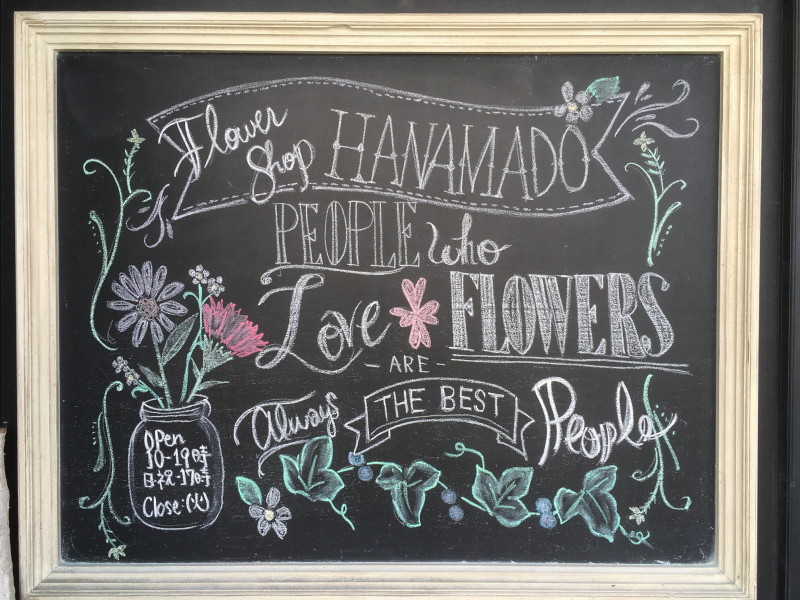 Flower Shop HANAMADO
PEOPLE who
Love FLOWERS
- ARE -
Always THE BEST People
OPEN
10-19時
日・祝-17時
Close:(火)